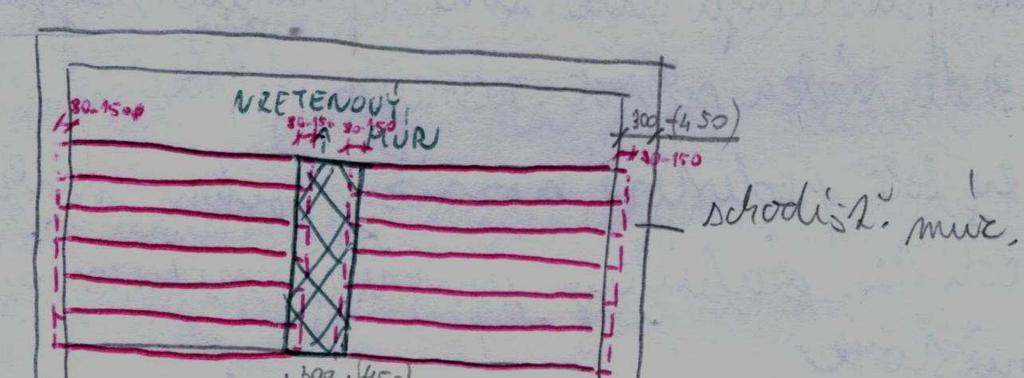 VŘETENOVÝ
MÚR
80-150
80-150
80-150
300 (450)
80-150
schodišť. múr.
300 (450)